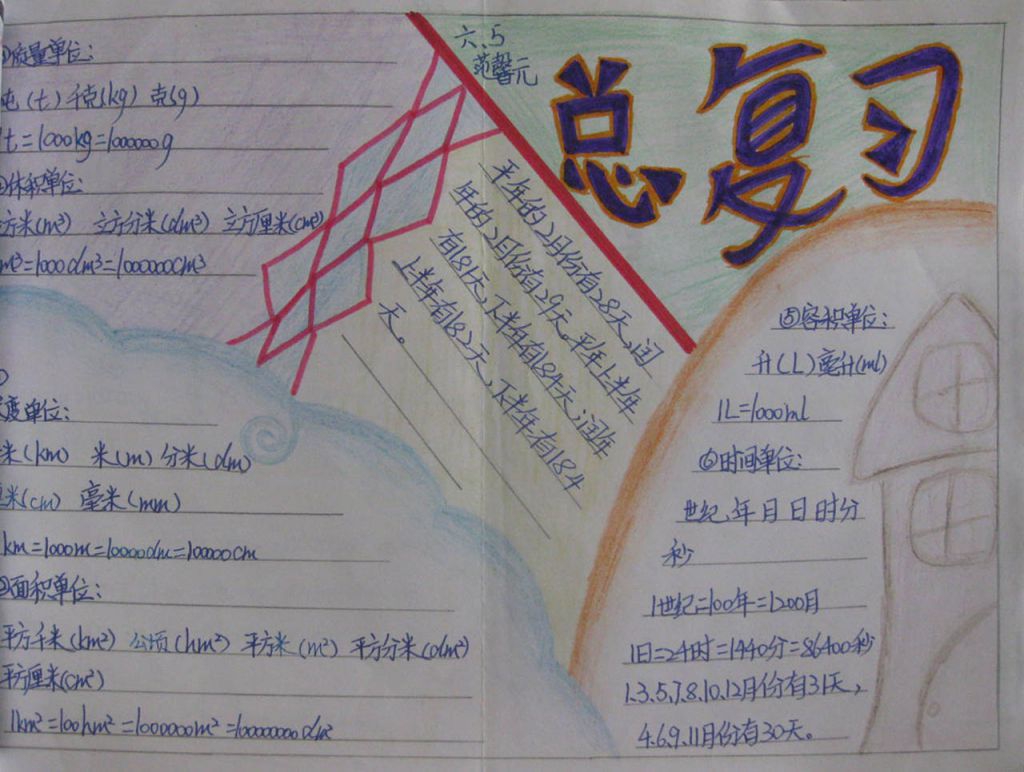 总复习
六、5
范馨元
质量单位:
吨(t) 千克(kg) 克(g)
t=1000kg=1000000g
体积单位:
方米(m³) 立方分米(dm³) 立方厘米(cm³)
m³=1000dm³=1000000cm³
平年的2月份有28天,闰
年的2月份有29天。平年上半年
有181天,下半年有184天;闰年
上半年有182天,下半年有184
天。
度单位:
米(km) 米(m) 分米(dm)
米(cm) 毫米(mm)
km=1000m=10000dm=100000cm
面积单位:
平方千米(km²) 公顷(hm²) 平方米(m²) 平方分米(dm²)
平方厘米(cm²)
1km²=100hm²=1000000m²=100000000dm²
⑤容积单位:
升(L) 毫升(ml)
1L=1000ml
⑥时间单位:
世纪、年 月 日 时 分
秒
1世纪=100年=1200月
1日=24时=1440分=86400秒
1.3.5.7.8.10.12月份有31天,
4.6.9.11月份有30天。